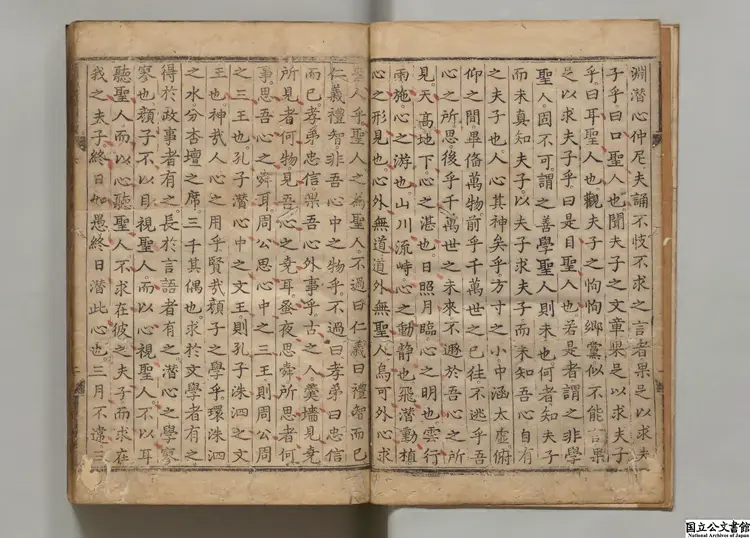 淵潜心仲尼夫誦不忮不求之言者果足以求夫
子乎曰口聖人也聞夫子之文章果足以求夫子
乎曰耳聖人也觀夫子之恂恂鄉黨似不能言果
足以求夫子乎曰是目聖人也若是者謂之非學
聖人固不可謂之善學聖人則未也何者知夫子
而未真知夫子以夫子求夫子而未知吾心自有
之夫子也人心其神矣乎方寸之小中涵太虛俯
仰之間畢俻萬物前乎千萬世之已往不逃乎吾
心之所思後乎千萬世之未來不遯於吾心之所
見天高地下心之湛也日照月臨心之明也雲行
雨施心之游也山川流峙心之動靜也飛潜動植
心之形見也心外無道道外無聖人烏可外心求
聖人乎聖人之為聖人不過曰仁義曰禮智而已
仁義禮智非吾心中之物乎不過曰孝弟曰忠信
而已孝弟忠信果吾心外事乎古之人羹墻見堯
所見者何物見吾心之堯耳蚤夜思舜所思者何
事思吾心之舜耳周公思心中之三王則周公周
之三王也孔子潜心中之文王則孔子洙泗之文
王也神哉人心之用乎賢哉顔子之學乎環洙泗
之水分杏壇之席三千其偶也求於文學者有之
得於政事者有之長於言語者有之潜心之學寥
寥也顔子不以目視聖人而以心視聖人不以耳
聽聖人而以心聽聖人不求在彼之夫子而求在
我之夫子終日如愚終日潜此心也三月不違三
国立公文書館
National Archives of Japan